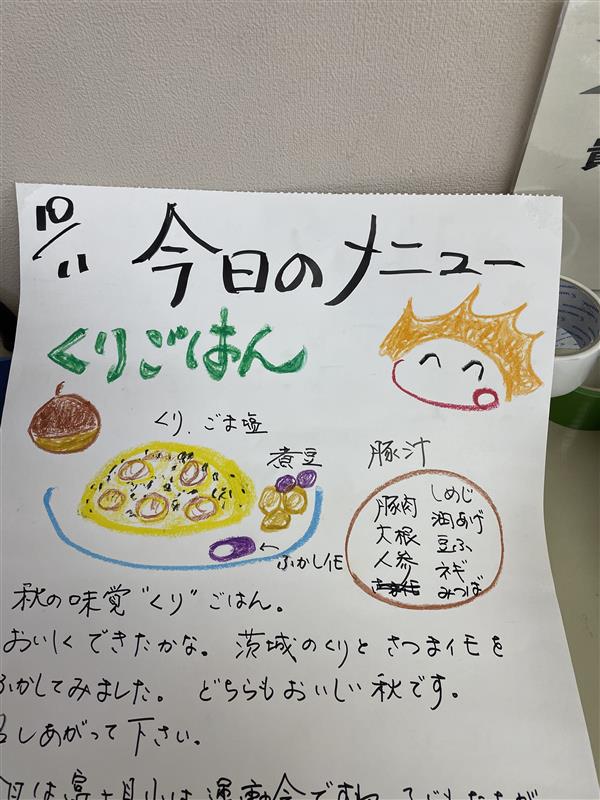 10/11
今日のメニュー
くりごはん
くり、ごま塩
煮豆
←ふかしイモ
豚汁
豚肉
大根
人参
しめじ
油あげ
豆ふ
ネギ
みつば
秋の味覚"くり"ごはん。
おいしくできたかな。茨城のくりとさつまイモを
ふかしてみました。どちらもおいしい秋です。
召しあがって下さい。